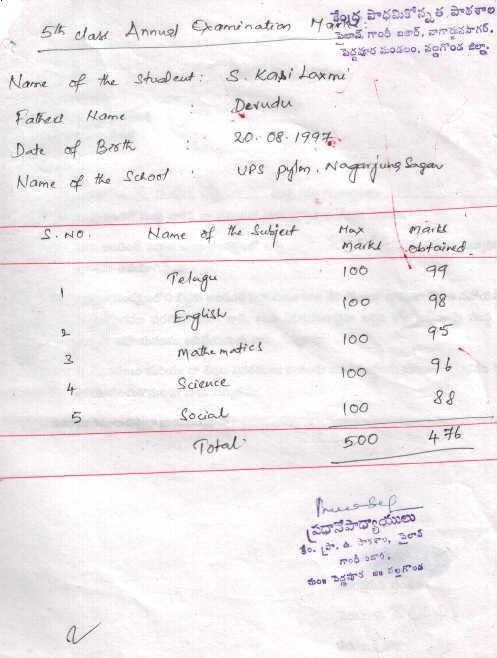 5th class Annual Examination Marks
కేంద్ర ప్రాథమికోన్నత పాఠశాల
పైలాన్ గాంధీ బజార్, నాగార్జునసాగర్.
పెద్దవూర మండలం, నల్గొండ జిల్లా.
Name of the Student : S. Kasi Laxmi
Father Name : Devudu
Date of Birth : 20-08-1997
Name of the School : UPS pylon, Nagarjuna Sagar
S. NO. Name of the Subject Max marks Marks obtained
1 Telugu 100 99
2 English 100 98
3 Mathematics 100 95
4 Science 100 96
5 Social 100 88
Total 500 476
ప్రధానోపాధ్యాయులు
కేం. ప్రా. ఉ. పాఠశాల, పైలాన్
గాంధీ బజార్,
మం॥ పెద్దవూర జి॥ నల్గొండ